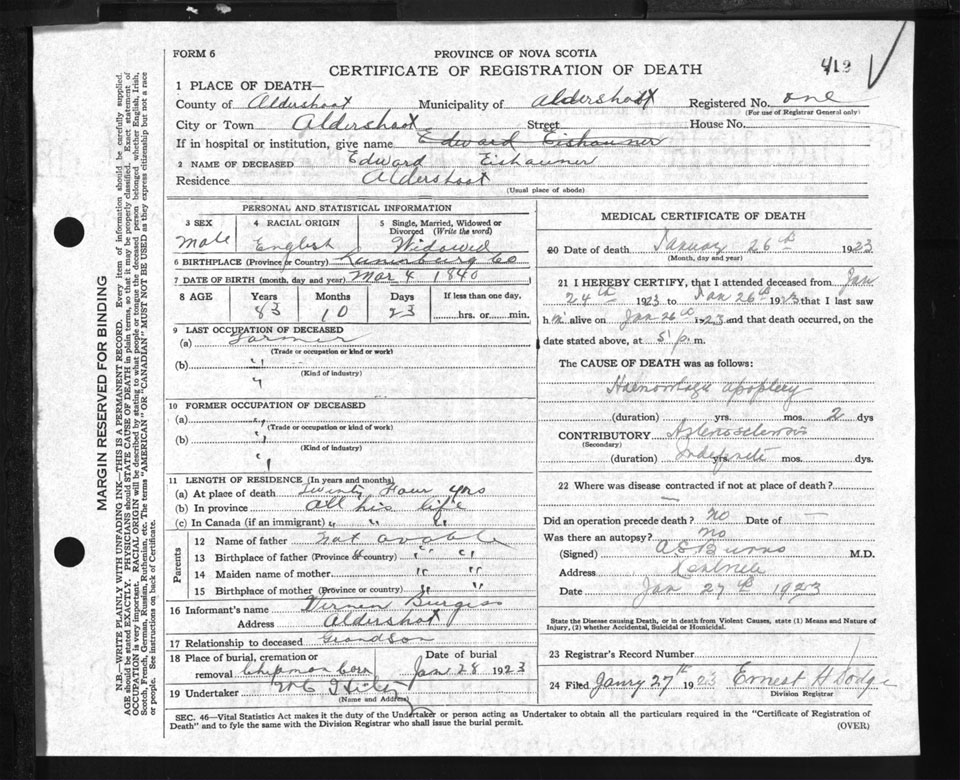 FORM 6
PROVINCE OF NOVA SCOTIA
CERTIFICATE OF REGISTRATION OF DEATH
412
1 PLACE OF DEATH—
County of Aldershoot Municipality of Aldershott Registered No. one
(For use of Registrar General only)
City or Town Aldershoot Street House No.
If in hospital or institution, give name Edward Eishauner
2 NAME OF DECEASED Edward Eishauner
Residence Aldershoot
(Usual place of abode)
MARGIN RESERVED FOR BINDING
N.B.—WRITE PLAINLY WITH UNFADING INK—THIS IS A PERMANENT RECORD. Every item of information should be carefully supplied.
AGE should be stated EXACTLY. PHYSICIANS should STATE CAUSE OF DEATH in plain terms, so that it may be properly classified. Exact statement of
OCCUPATION is very important. RACIAL ORIGIN will be described by stating to what people or tongue the deceased person belonged whether English, Irish,
Scotch, French, German, Russian, Ruthenian, etc. The terms "AMERICAN" OR "CANADIAN" MUST NOT BE USED as they express citizenship but not a race
or people. See instructions on back of Certificate.
PERSONAL AND STATISTICAL INFORMATION
3 SEX 4 RACIAL ORIGIN 5 Single, Married, Widowed or
Divorced (Write the word)
Male English Widowed
6 BIRTHPLACE (Province or Country) Lunenburg Co
7 DATE OF BIRTH (month, day and year) Mar 4 1840
8 AGE Years Months Days If less than one day,
83 10 23 hrs. or min.
9 LAST OCCUPATION OF DECEASED
(a) Farmer
(Trade or occupation or kind or work)
(b) "
(Kind of industry)
"
10 FORMER OCCUPATION OF DECEASED
(a) "
(Trade or occupation or kind of work)
(b) "
(Kind of industry)
"
11 LENGTH OF RESIDENCE (In years and months)
(a) At place of death Twenty Four yrs
(b) In province all his life
(c) In Canada (if an immigrant) " " "
Parents
12 Name of father Not avable
13 Birthplace of father (Province or country) " "
14 Maiden name of mother " "
15 Birthplace of mother (Province or country) " "
16 Informant's name Vernen Burgess
Address Aldershot
17 Relationship to deceased Grandson
18 Place of burial, cremation or Date of burial
removal Chipman Corn Jan 28 1923
19 Undertaker
(Name and Address)
MEDICAL CERTIFICATE OF DEATH
20 Date of death January 26th 1923
(Month, day and year)
21 I HEREBY CERTIFY, that I attended deceased from Jan
24th 1923 to Jan 26th 1923 that I last saw
h im alive on Jan 26th 1923 and that death occurred, on the
date stated above, at 5 p. m.
The CAUSE OF DEATH was as follows:
Haemorhagic apoplexy
(duration) yrs. mos. 2 dys
CONTRIBUTORY Arteriosclerosis
(Secondary)
(duration) Indefinite yrs. mos. dys.
22 Where was disease contracted if not at place of death?
—
Did an operation precede death? No Date of —
Was there an autopsy? No
(Signed) A S Burns M.D.
Address Kentville
Date Jan 27th 1923
State the Disease causing Death, or in death from Violent Causes, state (1) Means and Nature of
Injury, (2) whether Accidental, Suicidal or Homicidal.
23 Registrar's Record Number
24 Filed Janry 27th 1923 Ernest H Dodge
Division Registrar
SEC. 46—Vital Statistics Act makes it the duty of the Undertaker or person acting as Undertaker to obtain all the particulars required in the "Certificate of Registration of
Death" and to fyle the same with the Division Registrar who shall issue the burial permit.
(OVER)